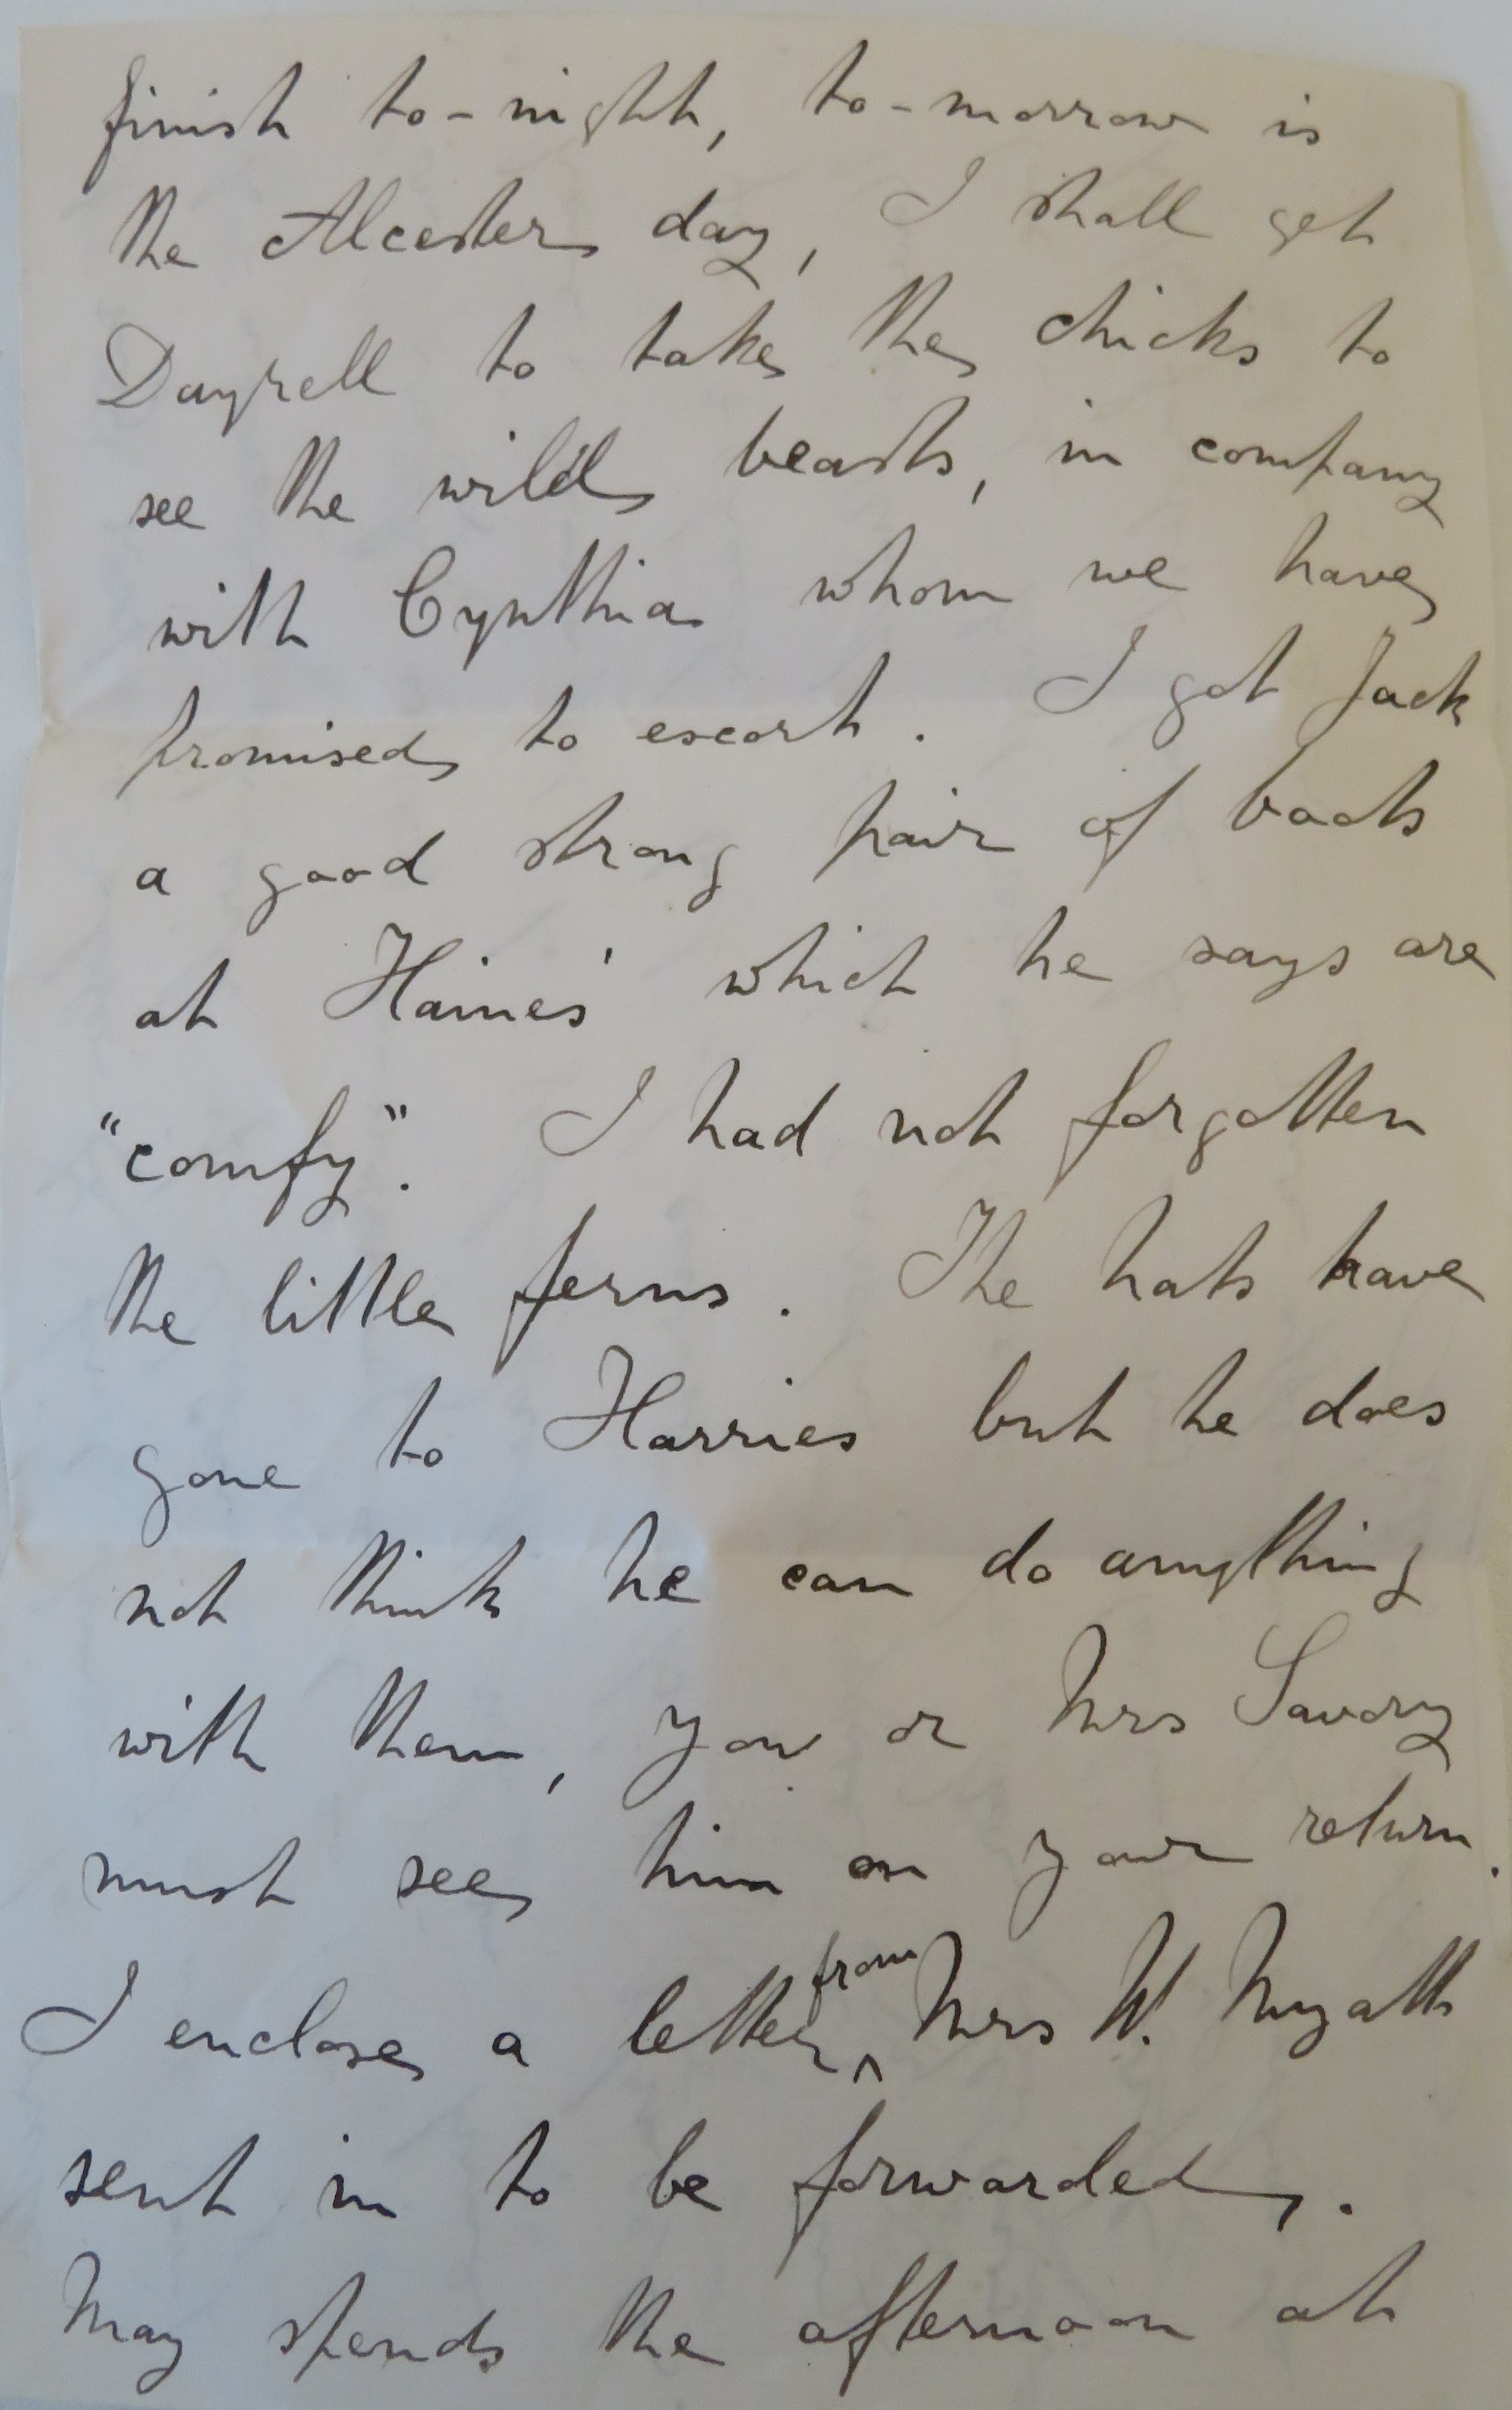 finish to-night, to-morrow is
the Alcester day, I shall get
Dayrell to take the chicks to
see the wild beasts, in company
with Cynthia whom we have
promised to escort. I got Jack
a good strong pair of boots
at Haines' which he says are
"comfy". I had not forgotten
the little ferns. The hats have
gone to Harries but he does
not think he can do anything
with them, you or Mrs Savory
must see him on your return.
I enclose a letter from Mrs W. Myatt
sent in to be forwarded.
May spends the afternoon at